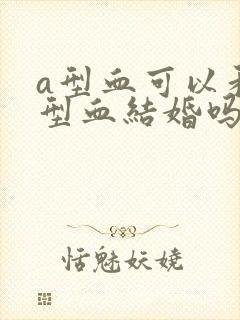 a型血可以和
型血結婚吗
恬魅妖娆